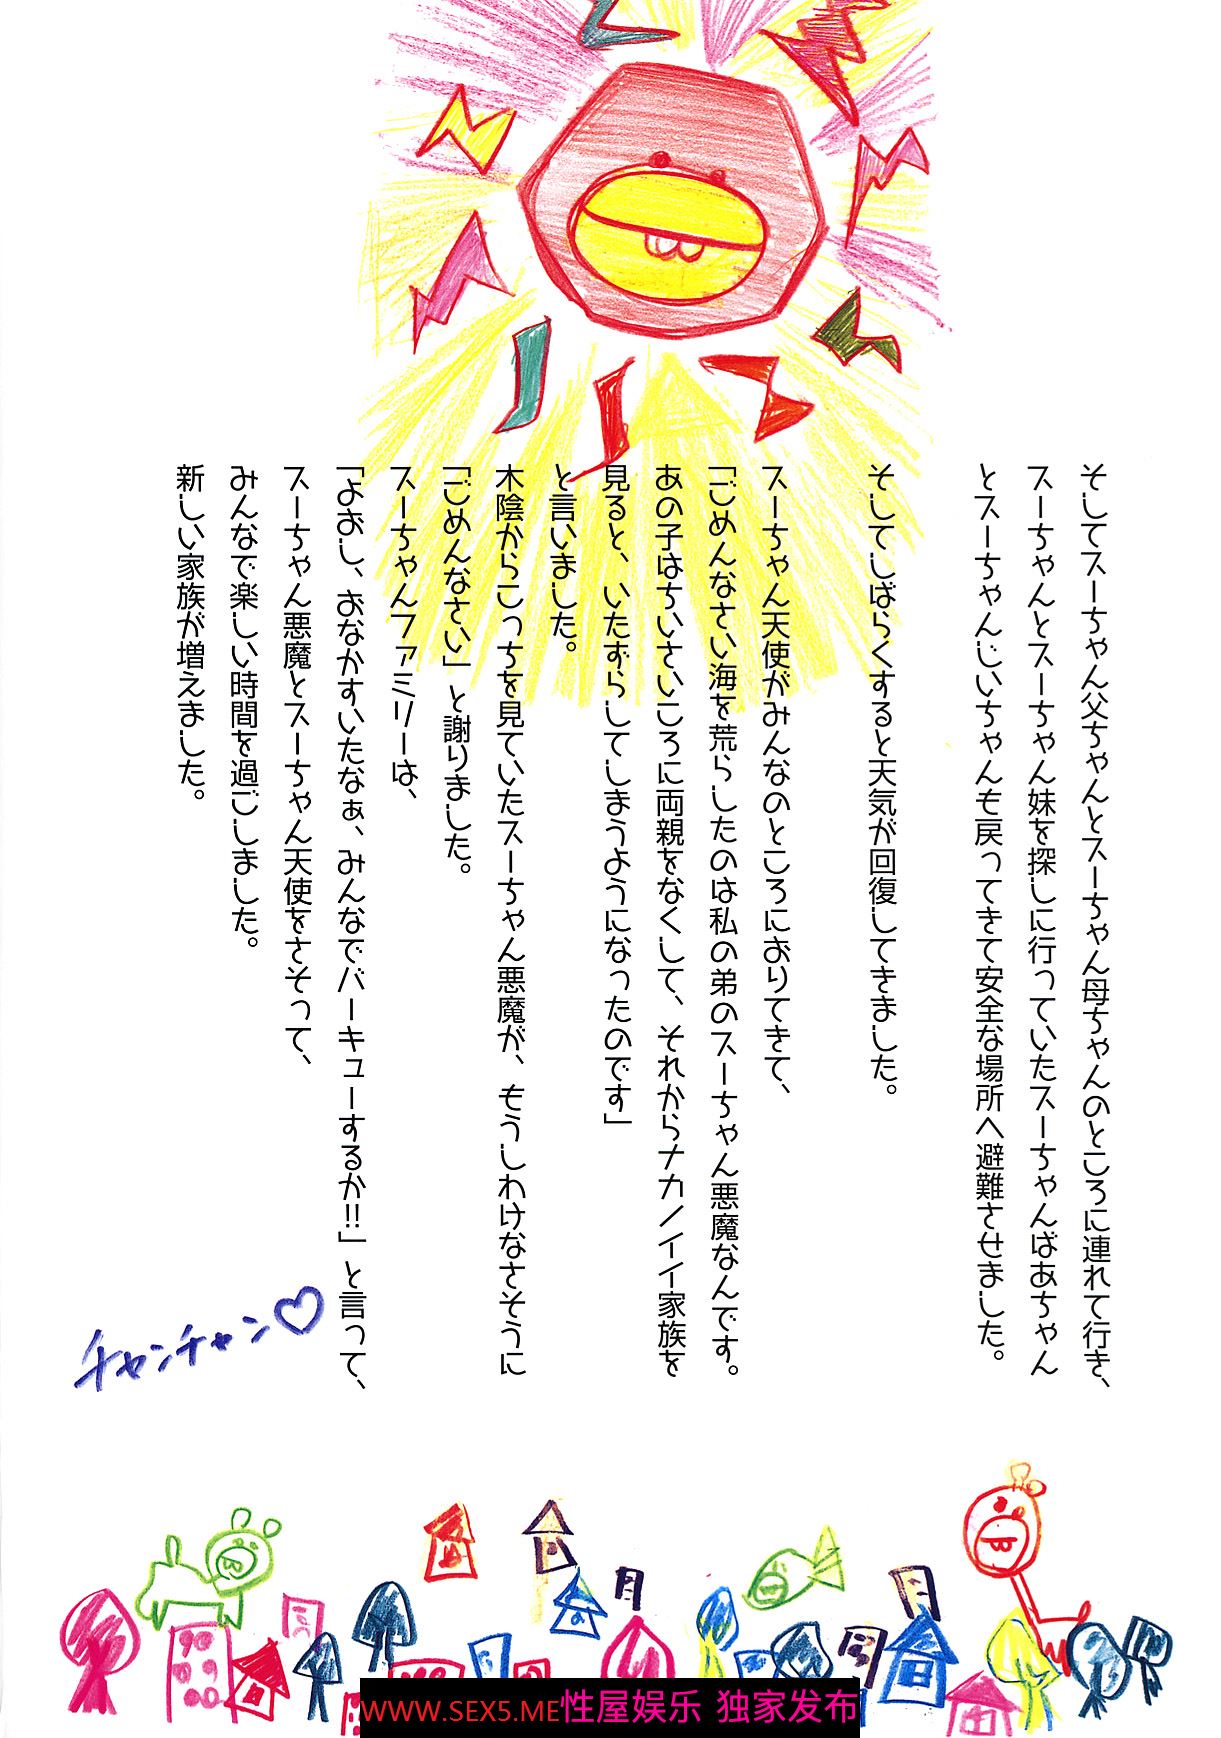 そしてスーちゃん父ちゃんとスーちゃん母ちゃんのところに連れて行き、
スーちゃんとスーちゃん妹を探しに行っていたスーちゃんばあちゃん
とスーちゃんじいちゃんも戻ってきて安全な場所へ避難させました。
そしてしばらくすると天気が回復してきました。
スーちゃん天使がみんなのところにおりてきて、
「ごめんなさい海を荒らしたのは私の弟のスーちゃん悪魔なんです。
あの子はちいさいころに両親をなくして、それからナカノイイ家族を
見ると、いたずらしてしまうようになったのです」
と言いました。
木陰からこっちを見ていたスーちゃん悪魔が、もうしわけなさそうに
「ごめんなさい」と謝りました。
スーちゃんファミリーは、
「よおし、おなかすいたなぁ、みんなでバーキューするか!!」と言って、
スーちゃん悪魔とスーちゃん天使をさそって、
みんなで楽しい時間を過ごしました。
新しい家族が増えました。
チャンチャン♡
WWW.SEX5.ME性屋娱乐 独家发布